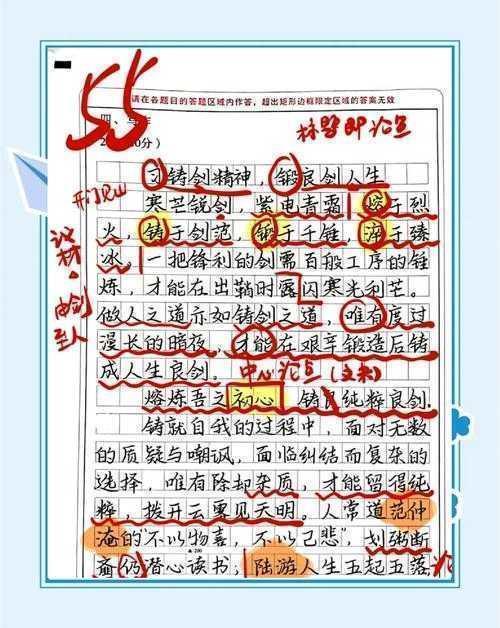 55
请在各题目的答题区域内作答,超出矩形边框限定区域的答案无效
四、写作
标题即论点
习铸剑精神,锻良剑人生
开门见山
寒芒锐剑,紫电青霜,熔于烈
火,铸于剑范,锻于千锤,淬于臻
议材:由剑到人
冰,一把锋利的剑需百般工序的锤
炼,才能在出鞘时露闪寒光利芒。
做人之道亦如铸剑之道,唯有度过
漫长的暗夜,才能在艰辛锻造后铸
成人生良剑。
中心论点
熔炼吾之初心,铸良纯粹良剑.
铸就自我的过程中,面对无数
的质疑与嘲讽,面临纠结而复杂的
选择,唯有除却杂质,才能留得纯
粹,拨开云雾见天明。人常道范仲
淹的“不以物喜,不以己悲”,划粥断
▲200
齑仍潜心读书;陆游人生五起五落